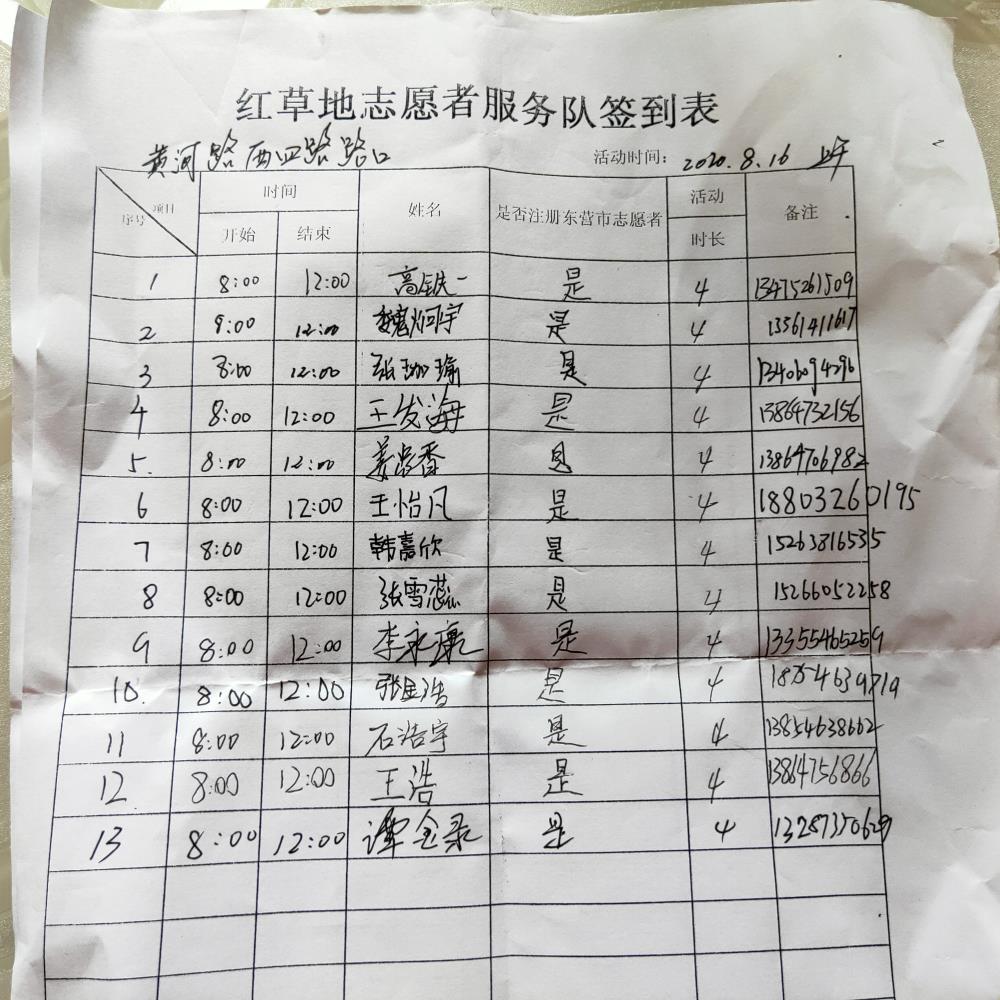 红草地志愿者服务队签到表
黄河路西四路路口 活动时间: 2020.8.16 上午
项目 序号 时间 姓名 是否注册东营市志愿者 活动 备注
开始 结束 时长
1 8:00 12:00 高铁一 是 4 13475261509
2 9:00 12:00 魏炯宇 是 4 13561411617
3 8:00 12:00 张珈瑜 是 4 13406094296
4 8:00 12:00 王发海 是 4 13864732156
5. 8:00 12:00 是 4 13864706982
6 8:00 12:00 王怡凡 是 4 18803260195
7 8:00 12:00 韩嘉欣 是 4 15263816535
8 8:00 12:00 张雪蕊 是 4 15266052258
9 8:00 12:00 李永康 是 4 13355465259
10. 8:00 12:00 是 4
11 8:00 12:00 石浩宇 是 4 13854638662
12 8:00 12:00 王浩 是 4 13864756866
13 8:00 12:00 谭金录 是 4 13287350629